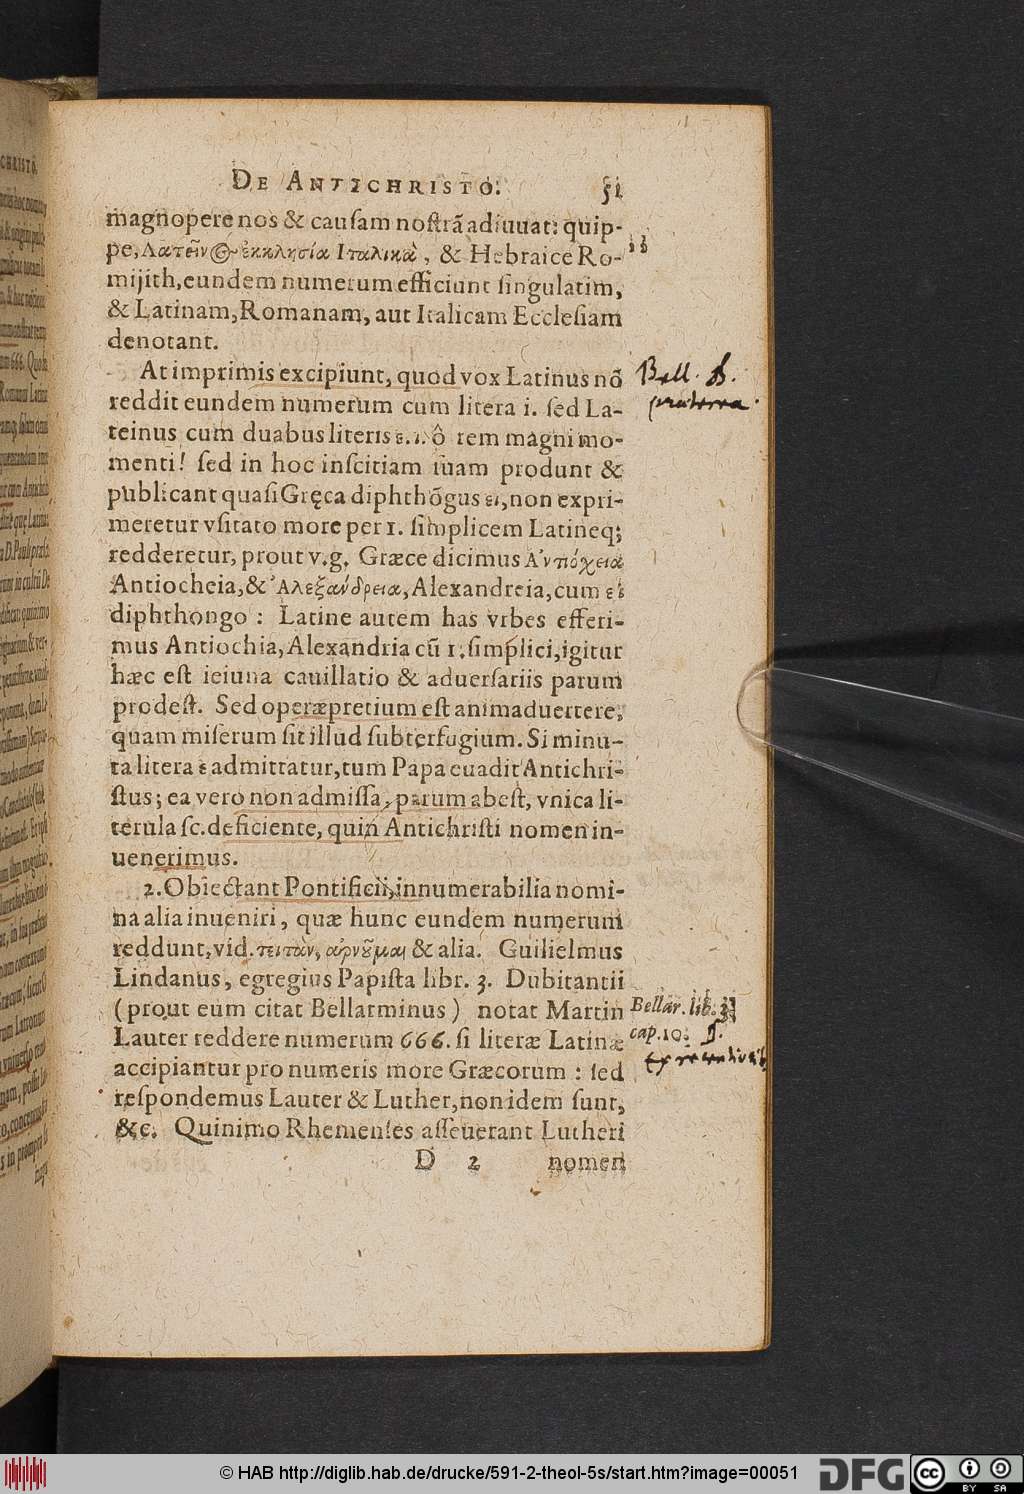 DE ANTICHRISTO. 51
magnopere nos & cauſam noſtrā adiuuat: quip-
pe, Λατεῖν(Θ)~ ἐκκλησία Ἰταλικὰ, & Hebraice Ro-
mijith, eundem numerum efficiunt ſingulatim,
& Latinam, Romanam, aut Italicam Eccleſiam
denotant.
At imprimis excipiunt, quod vox Latinus nō
reddit eundem numerum cum litera i. ſed La-
teinus cum duabus literis ε. ι. ô rem magni mo-
menti! ſed in hoc inſcitiam ſuam produnt &
publicant quaſi Gręca diphthōgus ει, non expri-
meretur vſitato more per I. ſimplicem Latineq;
redderetur, prout v.g. Græce dicimus Ἀντιόχεια
Antiocheia, & Ἀλεξάνδρεια, Alexandreia, cum ει
diphthongo: Latine autem has vrbes efferi-
mus Antiochia, Alexandria cū I. ſimplici, igitur
hæc eſt ieiuna cauillatio & aduerſariis parum
prodeſt. Sed operæpretium eſt animaduertere,
quam miſerum ſit illud ſubterfugium. Si minu-
ta litera ε admittatur, tum Papa euadit Antichri-
ſtus; ea vero non admiſſa, parum abeſt, vnica li-
terula ſc. deficiente, quin Antichriſti nomen in-
uenerimus.
2. Obiectant Pontificii, innumerabilia nomi-
na alia inueniri, quæ hunc eundem numerum
reddunt, vid. τειτὰν, ἀρνοῦμαι & alia. Guilielmus
Lindanus, egregius Papiſta libr. 3. Dubitantii
(prout eum citat Bellarminus) notat Martin
Lauter reddere numerum 666. ſi literæ Latinæ
accipiantur pro numeris more Græcorum: ſed
reſpondemus Lauter & Luther, non idem ſunt,
&c. Quinimo Rhemenſes aſſeuerant Lutheri
D 2 nomen
Bell.
Bellar. lib. 3
cap. 10.
© HAB http://diglib.hab.de/drucke/591-2-theol-5s/start.htm?image=00051
DFG
cc BY SA